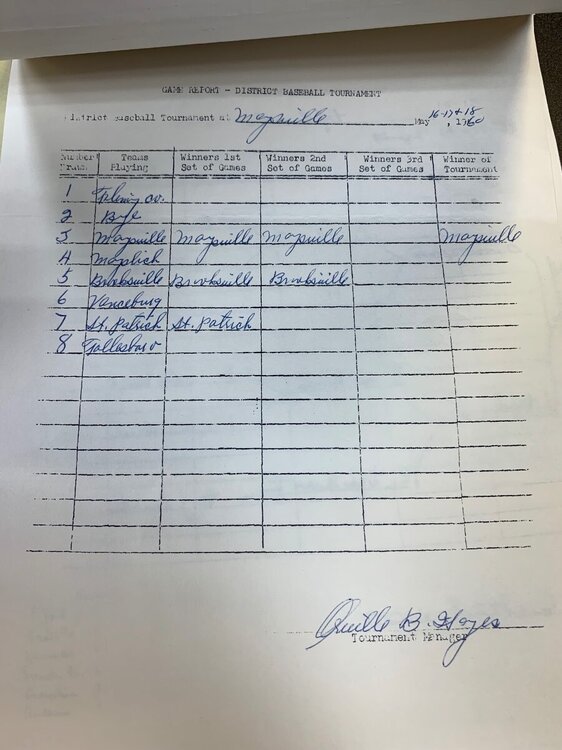 GAME REPORT - DISTRICT BASEBALL TOURNAMENT
District Baseball Tournament at Maysville May 16-17+18, 1960
Number Drawn Teams Playing Winners 1st Set of Games Winners 2nd Set of Games Winners 3rd Set of Games Winner of Tournament
1 Fleming Co.
2 Bye
3 Maysville Maysville Maysville Maysville
4 Mayslick
5 Brooksville Brooksville Brooksville
6 Vanceburg
7 St. Patrick St. Patrick
8 Tollesboro
B. Hayes
Tournament Manager